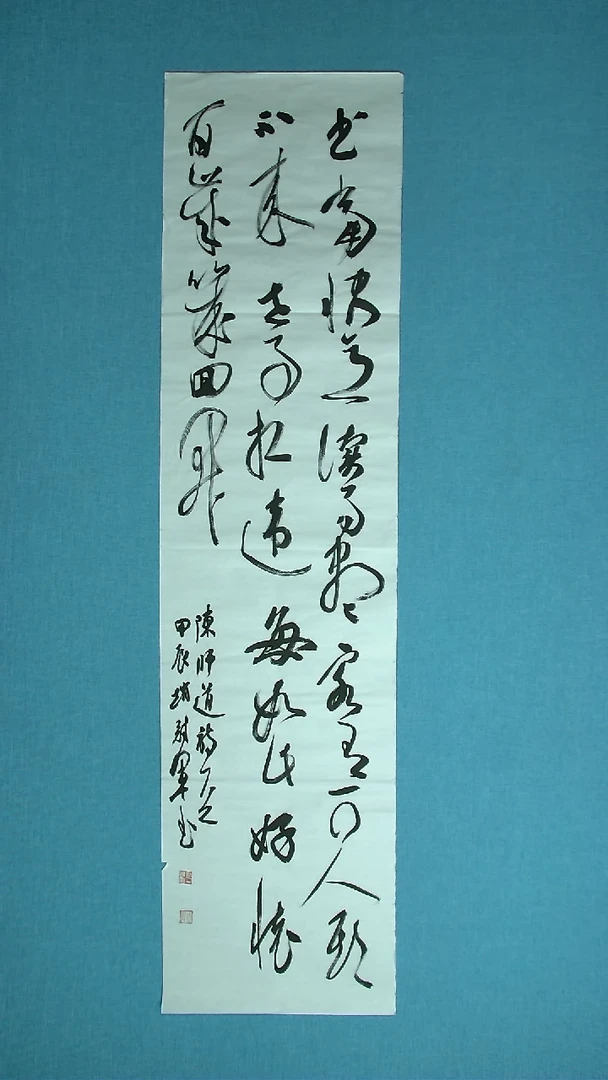 书當快意讀易盡客有可人期
不來世事相違每如此好懷
百歲幾回開
陳師道詩一首
甲辰趙軍书